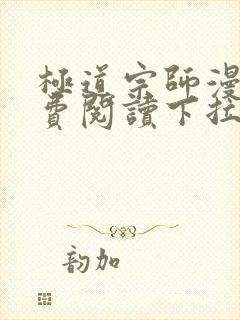 極道宗師漫
費閱讀下拉
韵加